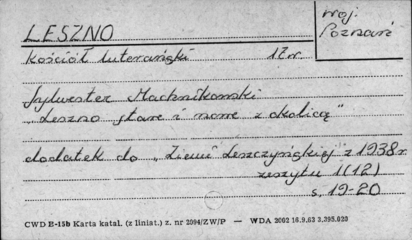 LESZNO
woj.
Poznań
Kościół luterański 17 w.
Sylwester Machnikowski
„Leszno stare i nowe z okolicą"
dodatek do „Ziemi Leszczyńskiej" z 1938 r.
zeszytu 1(12)
s. 19-20
CWD B-15b Karta katal. (z liniat.) z. nr 2094/ZW/P — WDA 2002 16.9.63 3,395.020